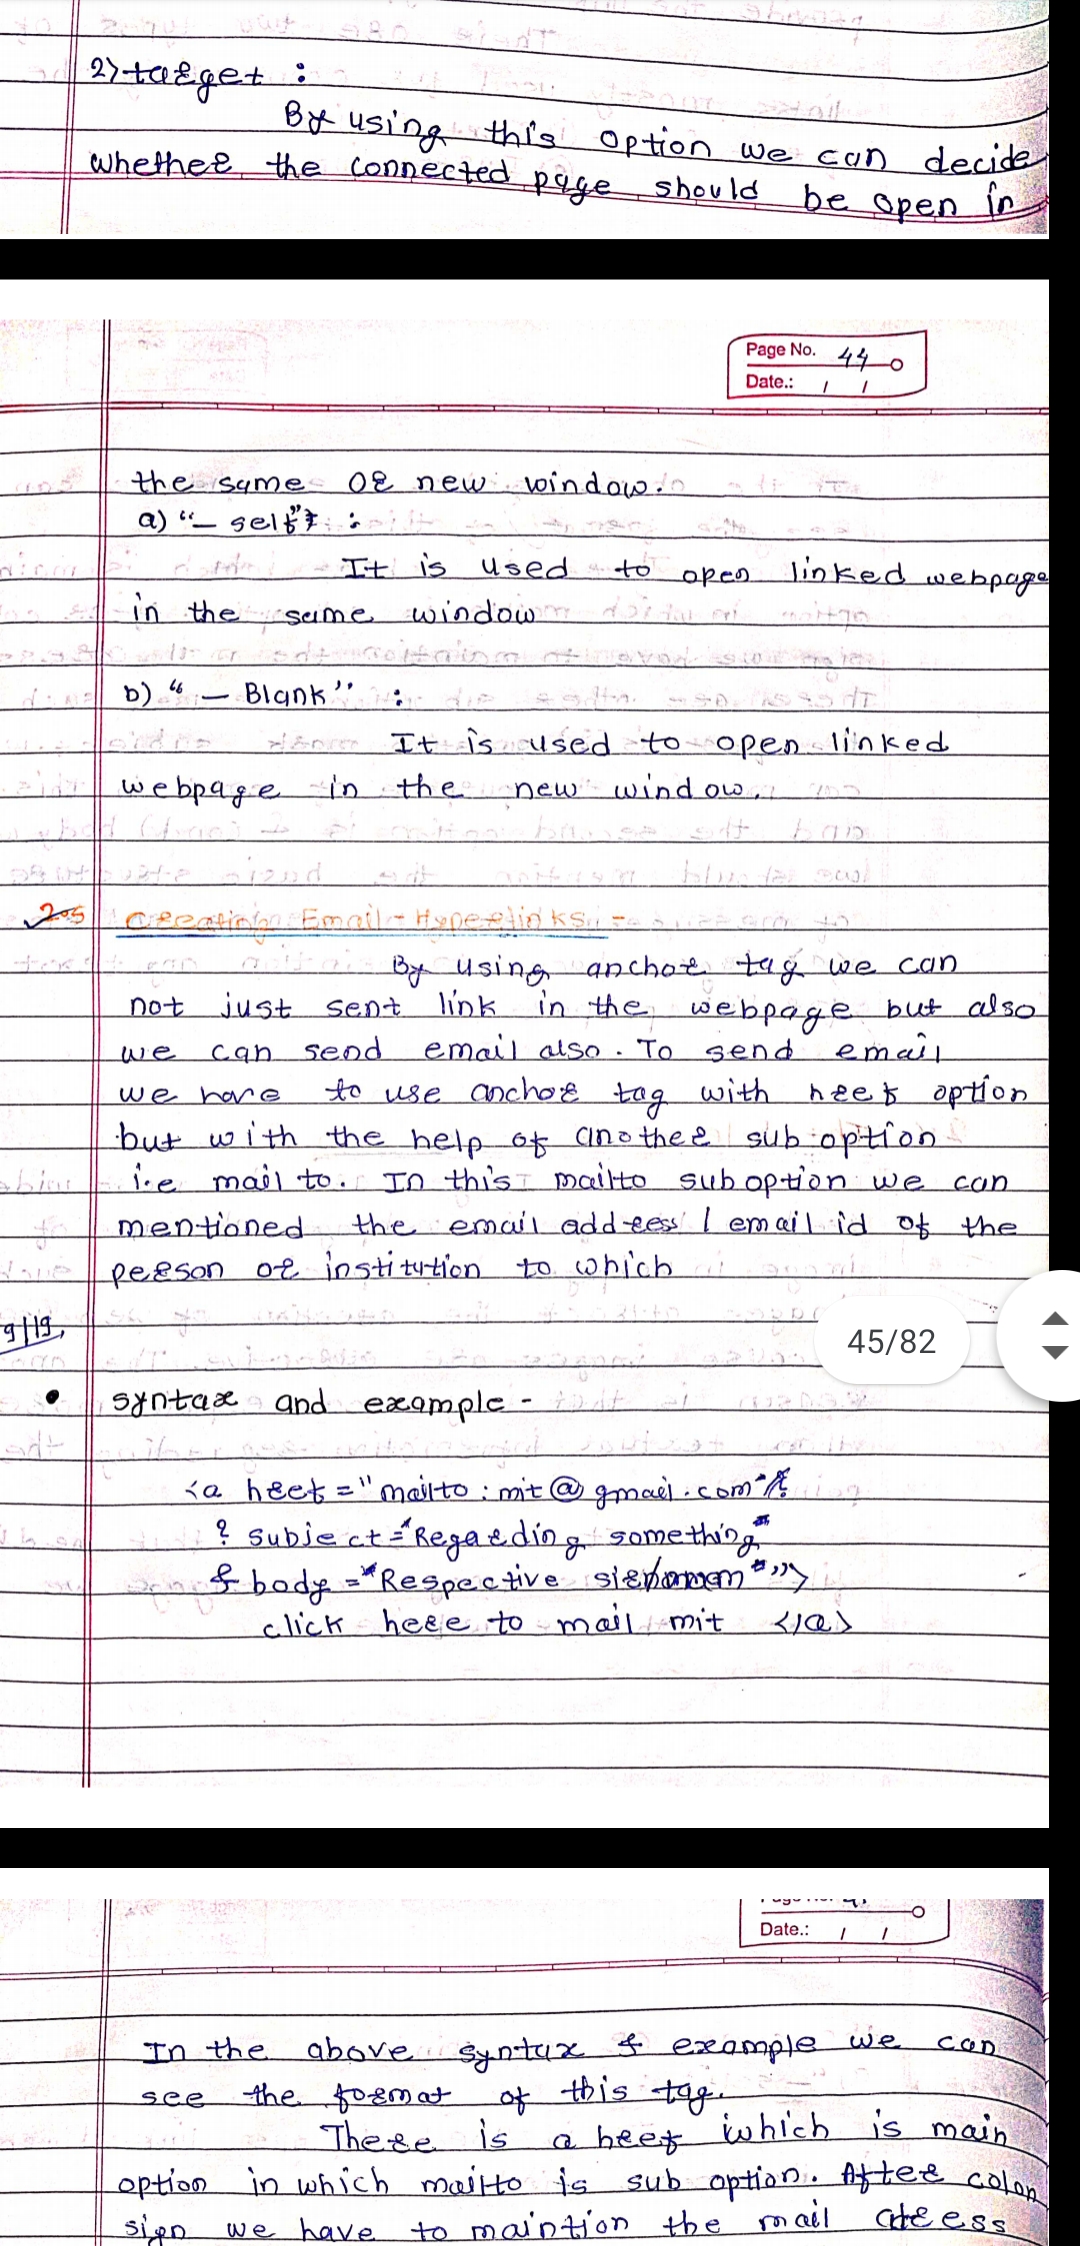 2) target :
By using this option we can decide
whether the connected page should be open in
Page No. 44
Date.: / /
the same or new window.
a) "_ self" :
It is used to open linked webpage
in the same window
b) "_ Blank" :
It is used to open linked
webpage in the new window.
2.5 Creating Email-Hyperlinks :-
By using anchor tag we can
not just sent link in the webpage but also
we can send email also. To send email
we have to use anchor tag with href option
but with the help of another sub option
i.e mail to. In this mailto sub option we can
mentioned the email address / email id of the
person or institution to which
9/19,
45/82
• syntax and example -
<a href="mailto : mit@gmail.com
? subject="Regarding something"
& body="Respective sir/mam"">
click here to mail mit </a>
Date.: / /
In the above syntax & example we can
see the format of this tag.
There is a href which is main
option in which mailto is sub option. After colon
sign we have to maintion the mail